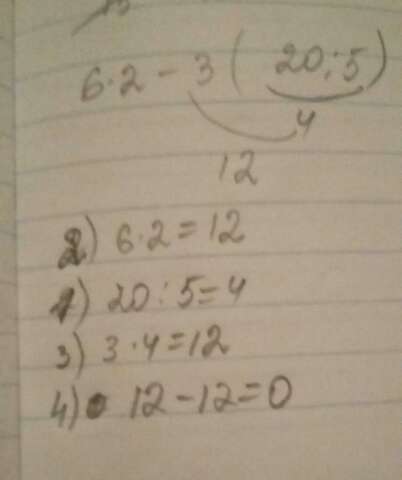 6·2-3(20:5)
4
12
2) 6·2=12
1) 20:5=4
3) 3·4=12
4) 12-12=0